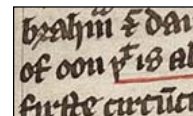 braham ⁊ dai
of oon þͭ is al
firste circūci